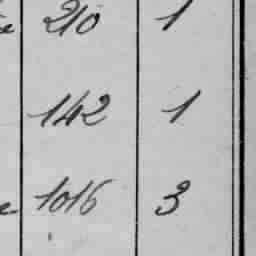 210 1
142 1
1016 3